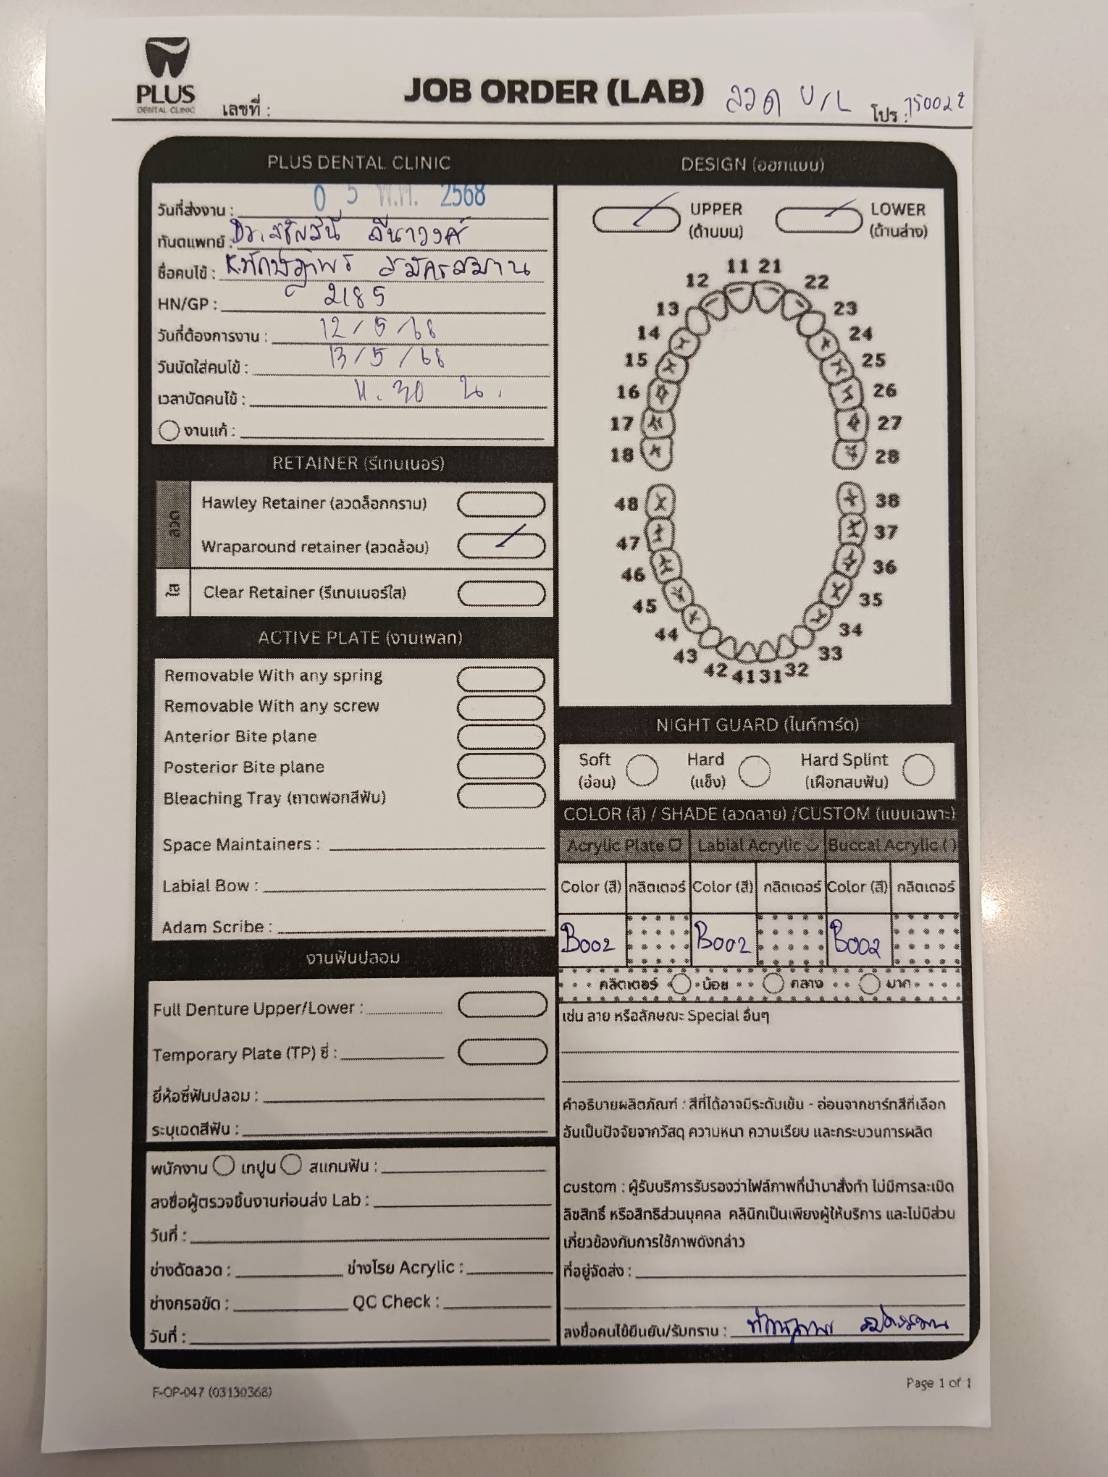 PLUS
DENTAL CLINIC
เลขที่ :
JOB ORDER (LAB) ลวด U/L
โปร :
PLUS DENTAL CLINIC
วันที่ส่งงาน : 0 5 พ.ค. 2568
ทันตแพทย์ :
ชื่อคนไข้ :
HN/GP : 2185
วันที่ต้องการงาน : 12/5/68
วันนัดใส่คนไข้ : 13/5/68
เวลานัดคนไข้ : 11.30 น.
งานแก้ :
RETAINER (รีเทนเนอร์)
ลวด
Hawley Retainer (ลวดล็อกกราม)
Wraparound retainer (ลวดล้อม)
ใส
Clear Retainer (รีเทนเนอร์ใส)
ACTIVE PLATE (งานเพลท)
Removable With any spring
Removable With any screw
Anterior Bite plane
Posterior Bite plane
Bleaching Tray (ถาดฟอกสีฟัน)
Space Maintainers :
Labial Bow :
Adam Scribe :
งานฟันปลอม
Full Denture Upper/Lower :
Temporary Plate (TP) ซี่ :
ยี่ห้อซี่ฟันปลอม :
ระบุเฉดสีฟัน :
พนักงาน เทปูน สแกนฟัน :
ลงชื่อผู้ตรวจชิ้นงานก่อนส่ง Lab :
วันที่ :
ช่างดัดลวด : ช่างโรย Acrylic :
ช่างกรอขัด : QC Check :
วันที่ :
DESIGN (ออกแบบ)
UPPER LOWER
(ด้านบน) (ด้านล่าง)
11 21
12 22
13 23
14 24
15 25
16 26
17 27
18 28
48 38
47 37
46 36
45 35
44 34
43 33
42 41 31 32
NIGHT GUARD (ไนท์การ์ด)
Soft Hard Hard Splint
(อ่อน) (แข็ง) (เฝือกสบฟัน)
COLOR (สี) / SHADE (ลวดลาย) /CUSTOM (แบบเฉพาะ)
Acrylic Plate Labial Acrylic Buccal Acrylic ( )
Color (สี) กลิตเตอร์ Color (สี) กลิตเตอร์ Color (สี) กลิตเตอร์
B002 B002 B002
กลิตเตอร์ น้อย กลาง มาก
เช่น ลาย หรือลักษณะ Special อื่นๆ
คำอธิบายผลิตภัณฑ์ : สีที่ได้อาจมีระดับเข้ม - อ่อนจากชาร์ทสีที่เลือก
อันเป็นปัจจัยจากวัสดุ ความหนา ความเรียบ และกระบวนการผลิต
custom : ผู้รับบริการรับรองว่าไฟล์ภาพที่นำมาสั่งทำ ไม่มีการละเมิด
ลิขสิทธิ์ หรือสิทธิส่วนบุคคล คลินิกเป็นเพียงผู้ให้บริการ และไม่มีส่วน
เกี่ยวข้องกับการใช้ภาพดังกล่าว
ที่อยู่จัดส่ง :
ลงชื่อคนไข้ยืนยัน/รับทราบ :
F-OP-047 (03130368)
Page 1 of 1